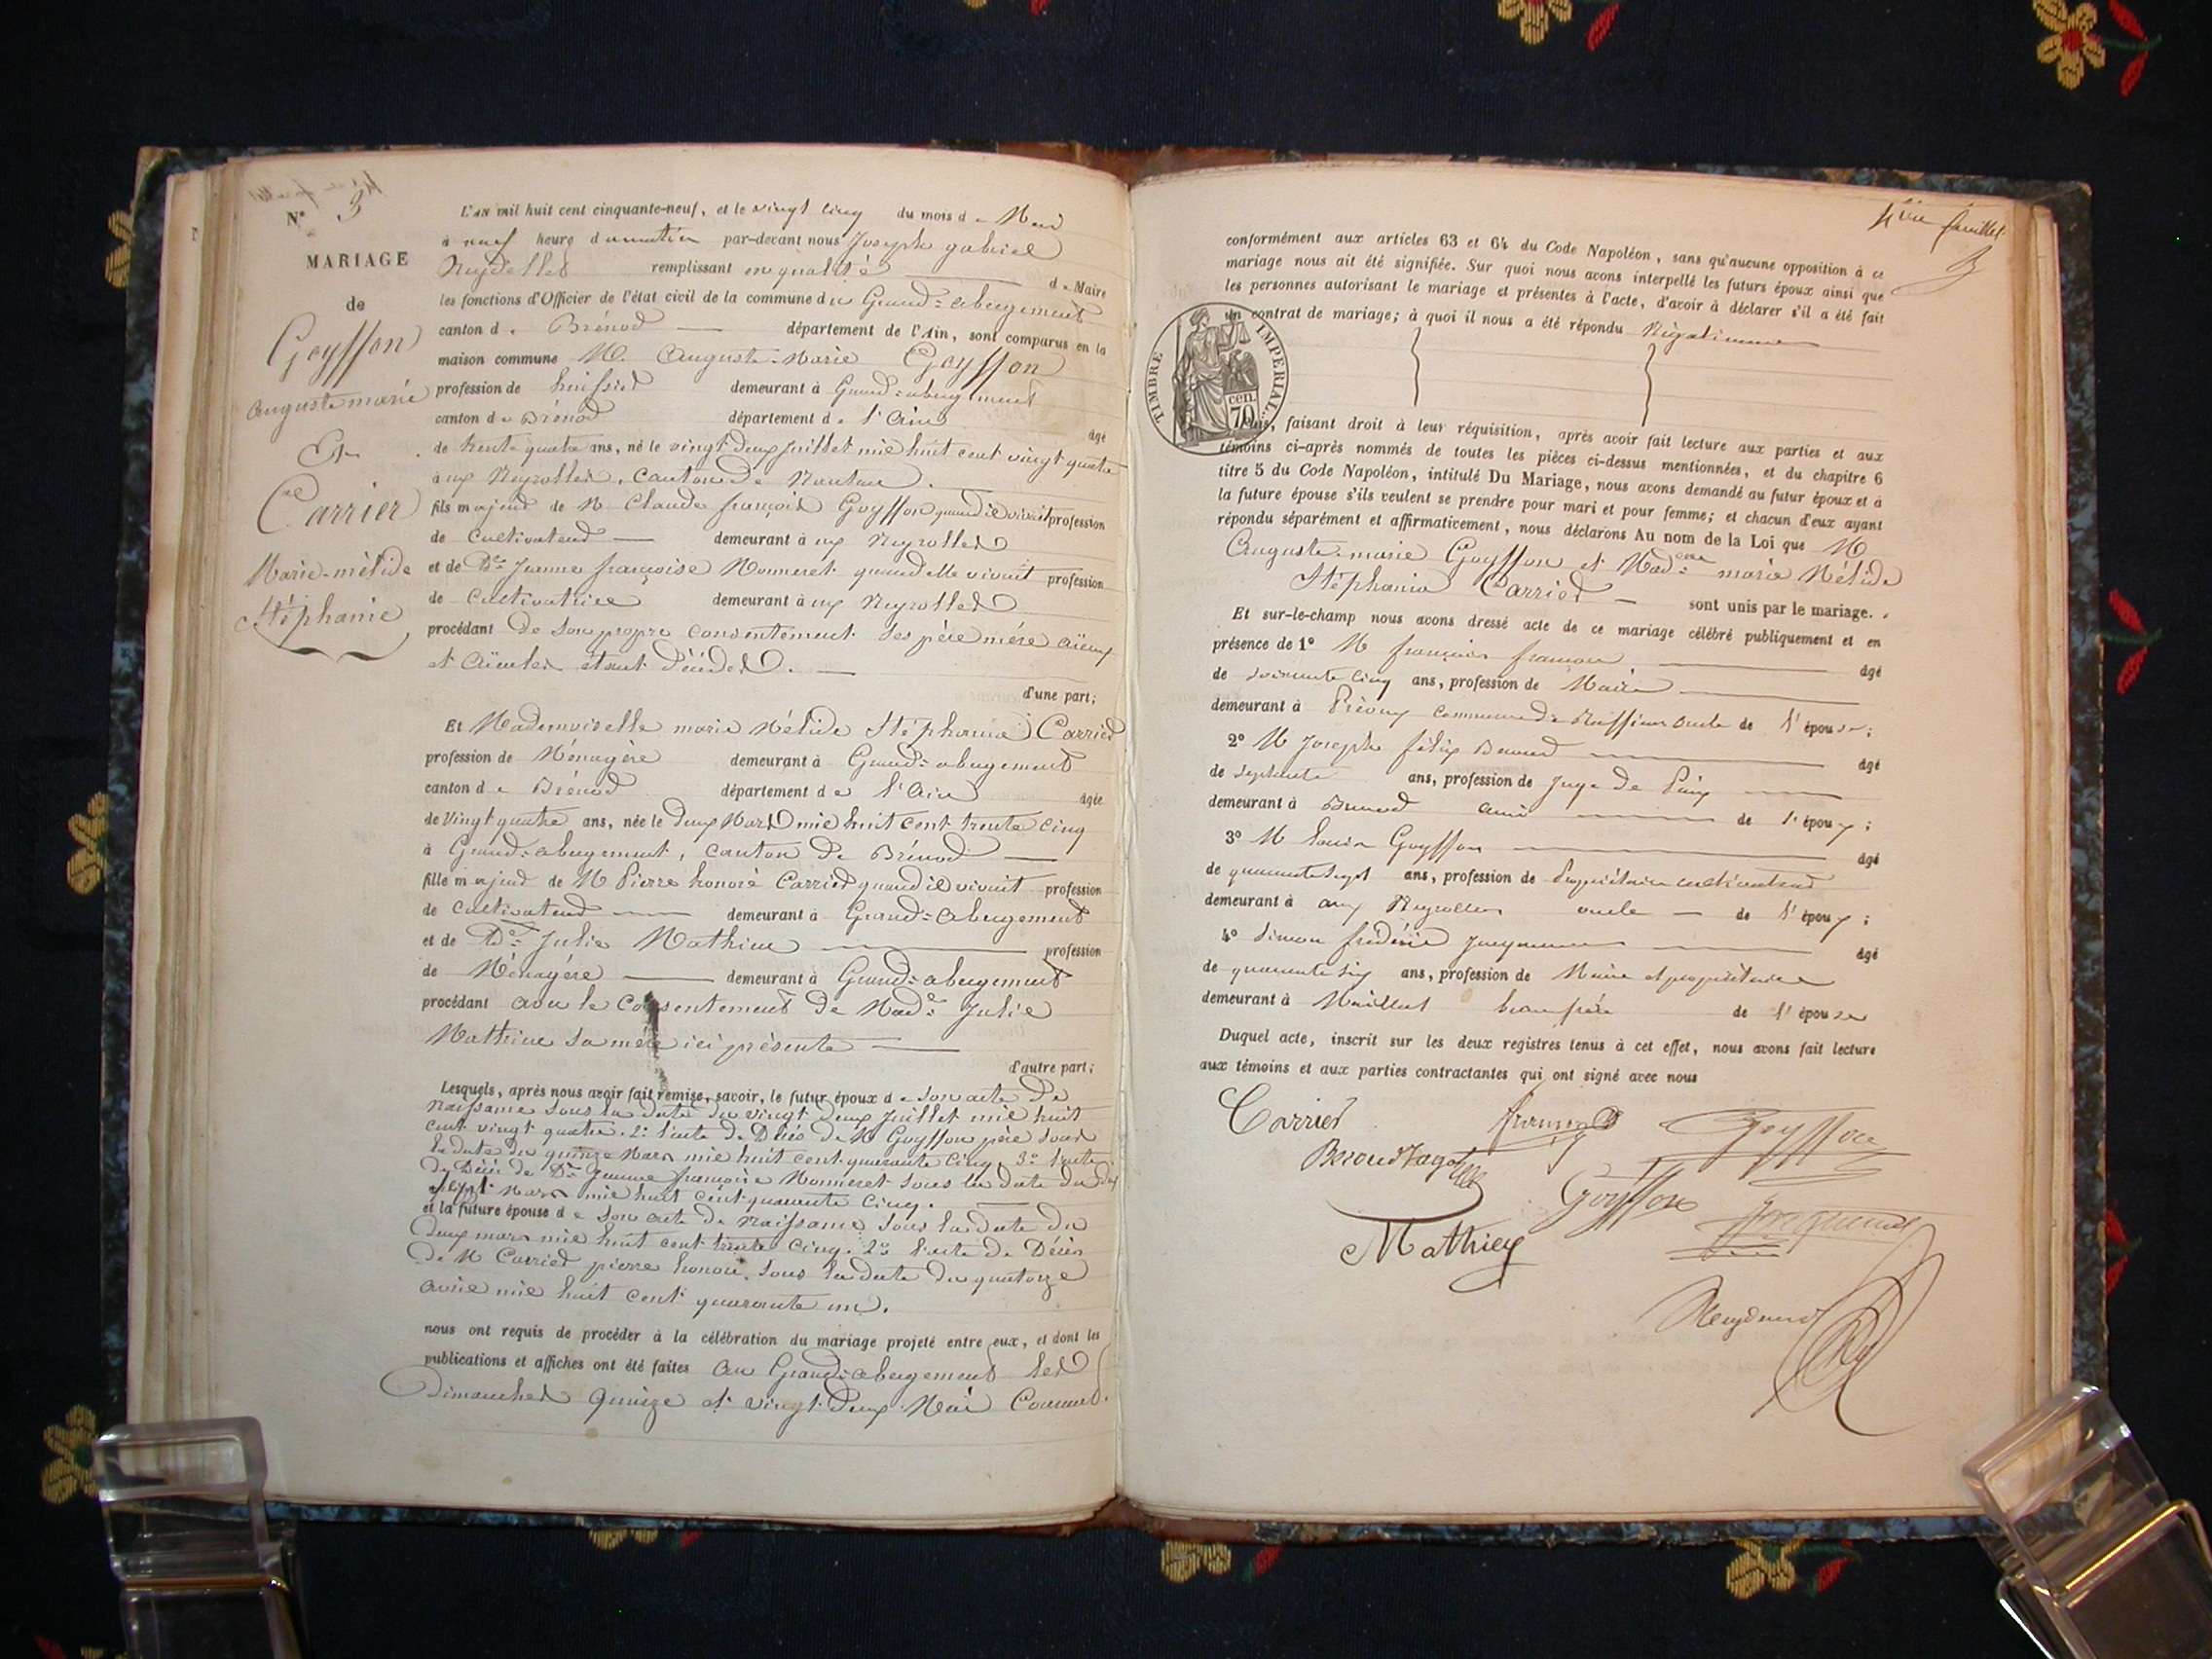 N° 3
MARIAGE
de
Goyffon
auguste marie
Et
Carrier
Marie-mélide
Stéphanie
L'AN mil huit cent cinquante-neuf, et le vingt cinq du mois de Mai
à neuf heure du matin par-devant nous Joseph gabriel
remplissant en qualité de Maire
les fonctions d'Officier de l'état civil de la commune du Grand=abergement
canton de Brénod département de l'Ain, sont comparus en la
maison commune M. Auguste-Marie Goyffon
profession de huissier demeurant à Grand=abergement
canton de Brénod département de l'Ain âgé
de trente quatre ans, né le vingt deux juillet mil huit cent vingt quatre
aux Neyrolles, canton de Nantua.
fils majeur de M Claude françois Goyffon quand il vivait profession
de Cultivateur demeurant à ux Neyrolles
et de De Jeanne françoise Monneret quand elle vivait profession
de Cultivatrice demeurant à ux Neyrolles
procédant de son propre consentement ses père mère aïeux
et aïeules étant décédés.
d'une part;
Et Mademoiselle marie Mélide Stéphanie Carrier
profession de Ménagère demeurant à Grand=abergement
canton de Brénod département de l'Ain âgée
de Vingt quatre ans, née le deux Mars mil huit cent trente cinq
à Grand=abergement, canton de Brénod
fille majeur de M Pierre honoré Carrier quand il vivait profession
de Cultivateur demeurant à Grand=abergement
et de De Julie Mathieu profession
de Ménagère demeurant à Grand=abergement
procédant avec le consentement de Made Julie
Mathieu sa mère ici présente
d'autre part;
Lesquels, après nous avoir fait remise, savoir, le futur époux de son acte de
naissance sous la date du vingt deux juillet mil huit
cent vingt quatre. 2° l'acte de Décès de M Goyffon père sous
la date du quinze Mars mil huit cent quarante cinq 3° l'acte
de Décès de De Jeanne françoise Monneret sous la date du dix
sept Mars mil huit cent quarante cinq.
et la future épouse de son acte de naissance sous la date du
deux mars mil huit cent trente cinq. 2° l'acte de Décès
de M Carrier pierre honoré, sous la date du quatorze
avril mil huit cent quarante un.
nous ont requis de procéder à la célébration du mariage projeté entre eux, et dont les
publications et affiches ont été faites au Grand=abergement les
Dimanches quinze et vingt deux Mai Courant.
4ème feuillet
conformément aux articles 63 et 64 du Code Napoléon, sans qu'aucune opposition à ce
mariage nous ait été signifiée. Sur quoi nous avons interpellé les futurs époux ainsi que
les personnes autorisant le mariage et présentes à l'acte, d'avoir à déclarer s'il a été fait
un contrat de mariage; à quoi il nous a été répondu Négativement
TIMBRE IMPÉRIAL
70 cen.
Puis, faisant droit à leur réquisition, après avoir fait lecture aux parties et aux
témoins ci-après nommés de toutes les pièces ci-dessus mentionnées, et du chapitre 6
titre 5 du Code Napoléon, intitulé Du Mariage, nous avons demandé au futur époux et à
la future épouse s'ils veulent se prendre pour mari et pour femme; et chacun d'eux ayant
répondu séparément et affirmativement, nous déclarons Au nom de la Loi que M
Auguste-marie Goyffon et Madelle marie Mélide
Stéphanie Carrier sont unis par le mariage.
Et sur-le-champ nous avons dressé acte de ce mariage célébré publiquement et en
présence de 1° M françois âgé
de soixante cinq ans, profession de Maire
demeurant à commune de Ruffieu oncle de l'épouse;
2° M Joseph félix Beroud âgé
de Septante ans, profession de Juge de Paix
demeurant à Brenod ami de l'époux;
3° M Louis Goyffon âgé
de quarante sept ans, profession de Propriétaire cultivateur
demeurant à aux Neyrolles oncle de l'époux;
4° Simon frédéric âgé
de quarante six ans, profession de Maire et propriétaire
demeurant à Maillat beau frère de l'épouse
Duquel acte, inscrit sur les deux registres tenus à cet effet, nous avons fait lecture
aux témoins et aux parties contractantes qui ont signé avec nous
Carrier Goyffon
Goyffon
Mathieu